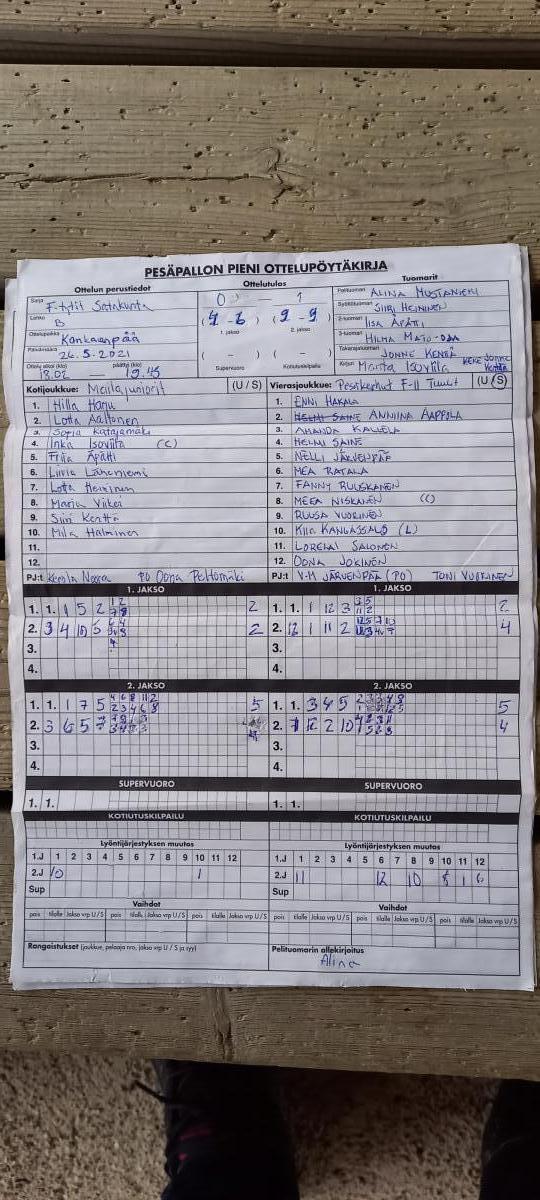 PESÄPALLON PIENI OTTELUPÖYTÄKIRJA
Ottelun perustiedot
Ottelutulos
Tuomarit
Sarja F-tytöt Satakunta
Lohko B
Ottelupaikka Kankaanpää
Päivämäärä 26.5.2021
Ottelu alkoi (klo) 18.02 — päättyi (klo) 19.45
0 1
(4 - 6) (9 - 9)
1. jakso 2. jakso
( - ) ( - )
Supervuoro Kotiutuskilpailu
Pelituomari ALINA MUSTANIEMI
Syöttötuomari SIIRI HEININEN
2-tuomari IISA ÄPÄTTI
3-tuomari HILMA MATO-OJA
Takarajatuomari JONNE KENTÄ
Kirjuri Marita Isoviita
Kotijoukkue: Mailajuniorit (U / S)
1. Hilla Harju
2. Lotta Aaltonen
3. Sofia Katajamäki
4. Inka Isoviita (C)
5. Fiia Äpätti
6. Liivia Lähteniemi
7. Lotta Heininen
8. Maria Viikei
9. Siiri Kenttä
10. Milla Halminen
11.
12.
PJ:t Noora PO Oona Peltomäki
Vierasjoukkue: Pesäkarhut F-II Tuult (U / S)
1. ENNI HAKALA
2. HELMI SAINE ANNIINA AAPPOLA
3. AMANDA KALLELA
4. HELMI SAINE
5. NELLI JÄRVENPÄÄ
6. MEA RATALA
7. FANNY RUUSKANEN
8. MEEA NISKANEN (C)
9. RUUSA VUORINEN
10. KIIA KANGASSALO (L)
11. LORELAI SALONEN
12. OONA JOKINEN
PJ:t V-M JÄRVENPÄÄ (PO) TONI VUORINEN
1. JAKSO
1. 1. 1 5 2 2
2. 3 4 10 5 2
3.
4.
1. JAKSO
1. 1. 1 12 3 2
2. 12 1 11 2 4
3.
4.
2. JAKSO
1. 1. 1 7 5 5
2. 3 6 5 7 4
3.
4.
2. JAKSO
1. 1. 3 4 5 5
2. 7 12 2 10 4
3.
4.
SUPERVUORO
1. 1.
SUPERVUORO
1. 1.
KOTIUTUSKILPAILU
KOTIUTUSKILPAILU
Lyöntijärjestyksen muutos
1.J 1 2 3 4 5 6 7 8 9 10 11 12
2.J 10 1
Sup
Lyöntijärjestyksen muutos
1.J 1 2 3 4 5 6 7 8 9 10 11 12
2.J 11 12 10 8 1 6
Sup
Vaihdot
pois tilalle Jakso vrp U / S pois tilalle Jakso vrp U / S pois tilalle Jakso vrp U / S
Vaihdot
pois tilalle Jakso vrp U / S pois tilalle Jakso vrp U / S pois tilalle Jakso vrp U / S
Rangaistukset (joukkue, pelaaja nro, jakso vrp U / S ja syy)
Pelituomarin allekirjoitus
Alina